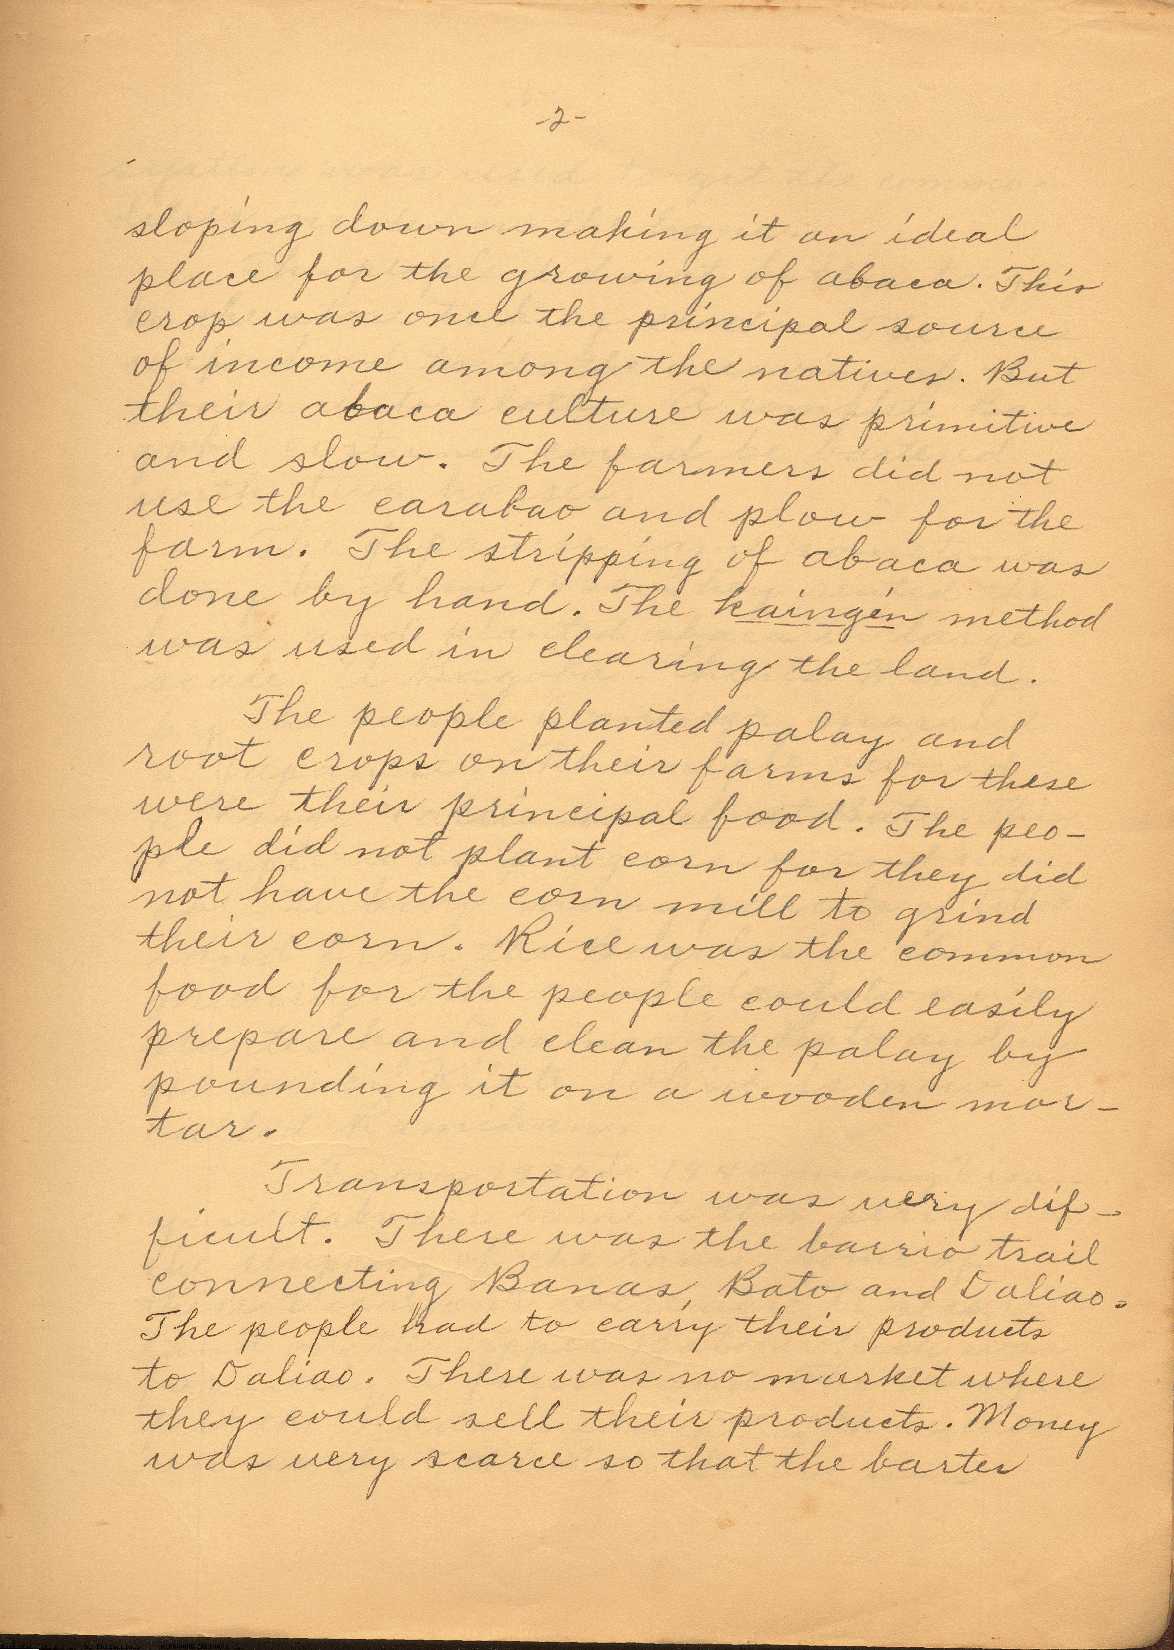 -2-
sloping down making it an ideal
place for the growing of abaca. This
crop was once the principal source
of income among the natives. But
their abaca culture was primitive
and slow. The farmers did not
use the carabao and plow for the
farm. The stripping of abaca was
done by hand. The kaingin method
was used in clearing the land.
The people planted palay and
root crops on their farms for these
were their principal food. The peo-
ple did not plant corn for they did
not have the corn mill to grind
their corn. Rice was the common
food for the people could easily
prepare and clean the palay by
pounding it on a wooden mor-
tar.
Transportation was very dif-
ficult. There was the barrio trail
connecting Banas, Bato and Daliao.
The people had to carry their products
to Daliao. There was no market where
they could sell their products. Money
was very scarce so that the barter